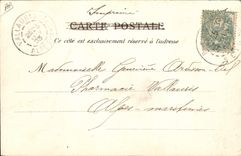 Imprimé
CARTE POSTALE
Ce côté est exclusivement réservé à l'adresse
Mademoiselle Geneviève
Pharmacie Vallauris
Alpes-maritimes